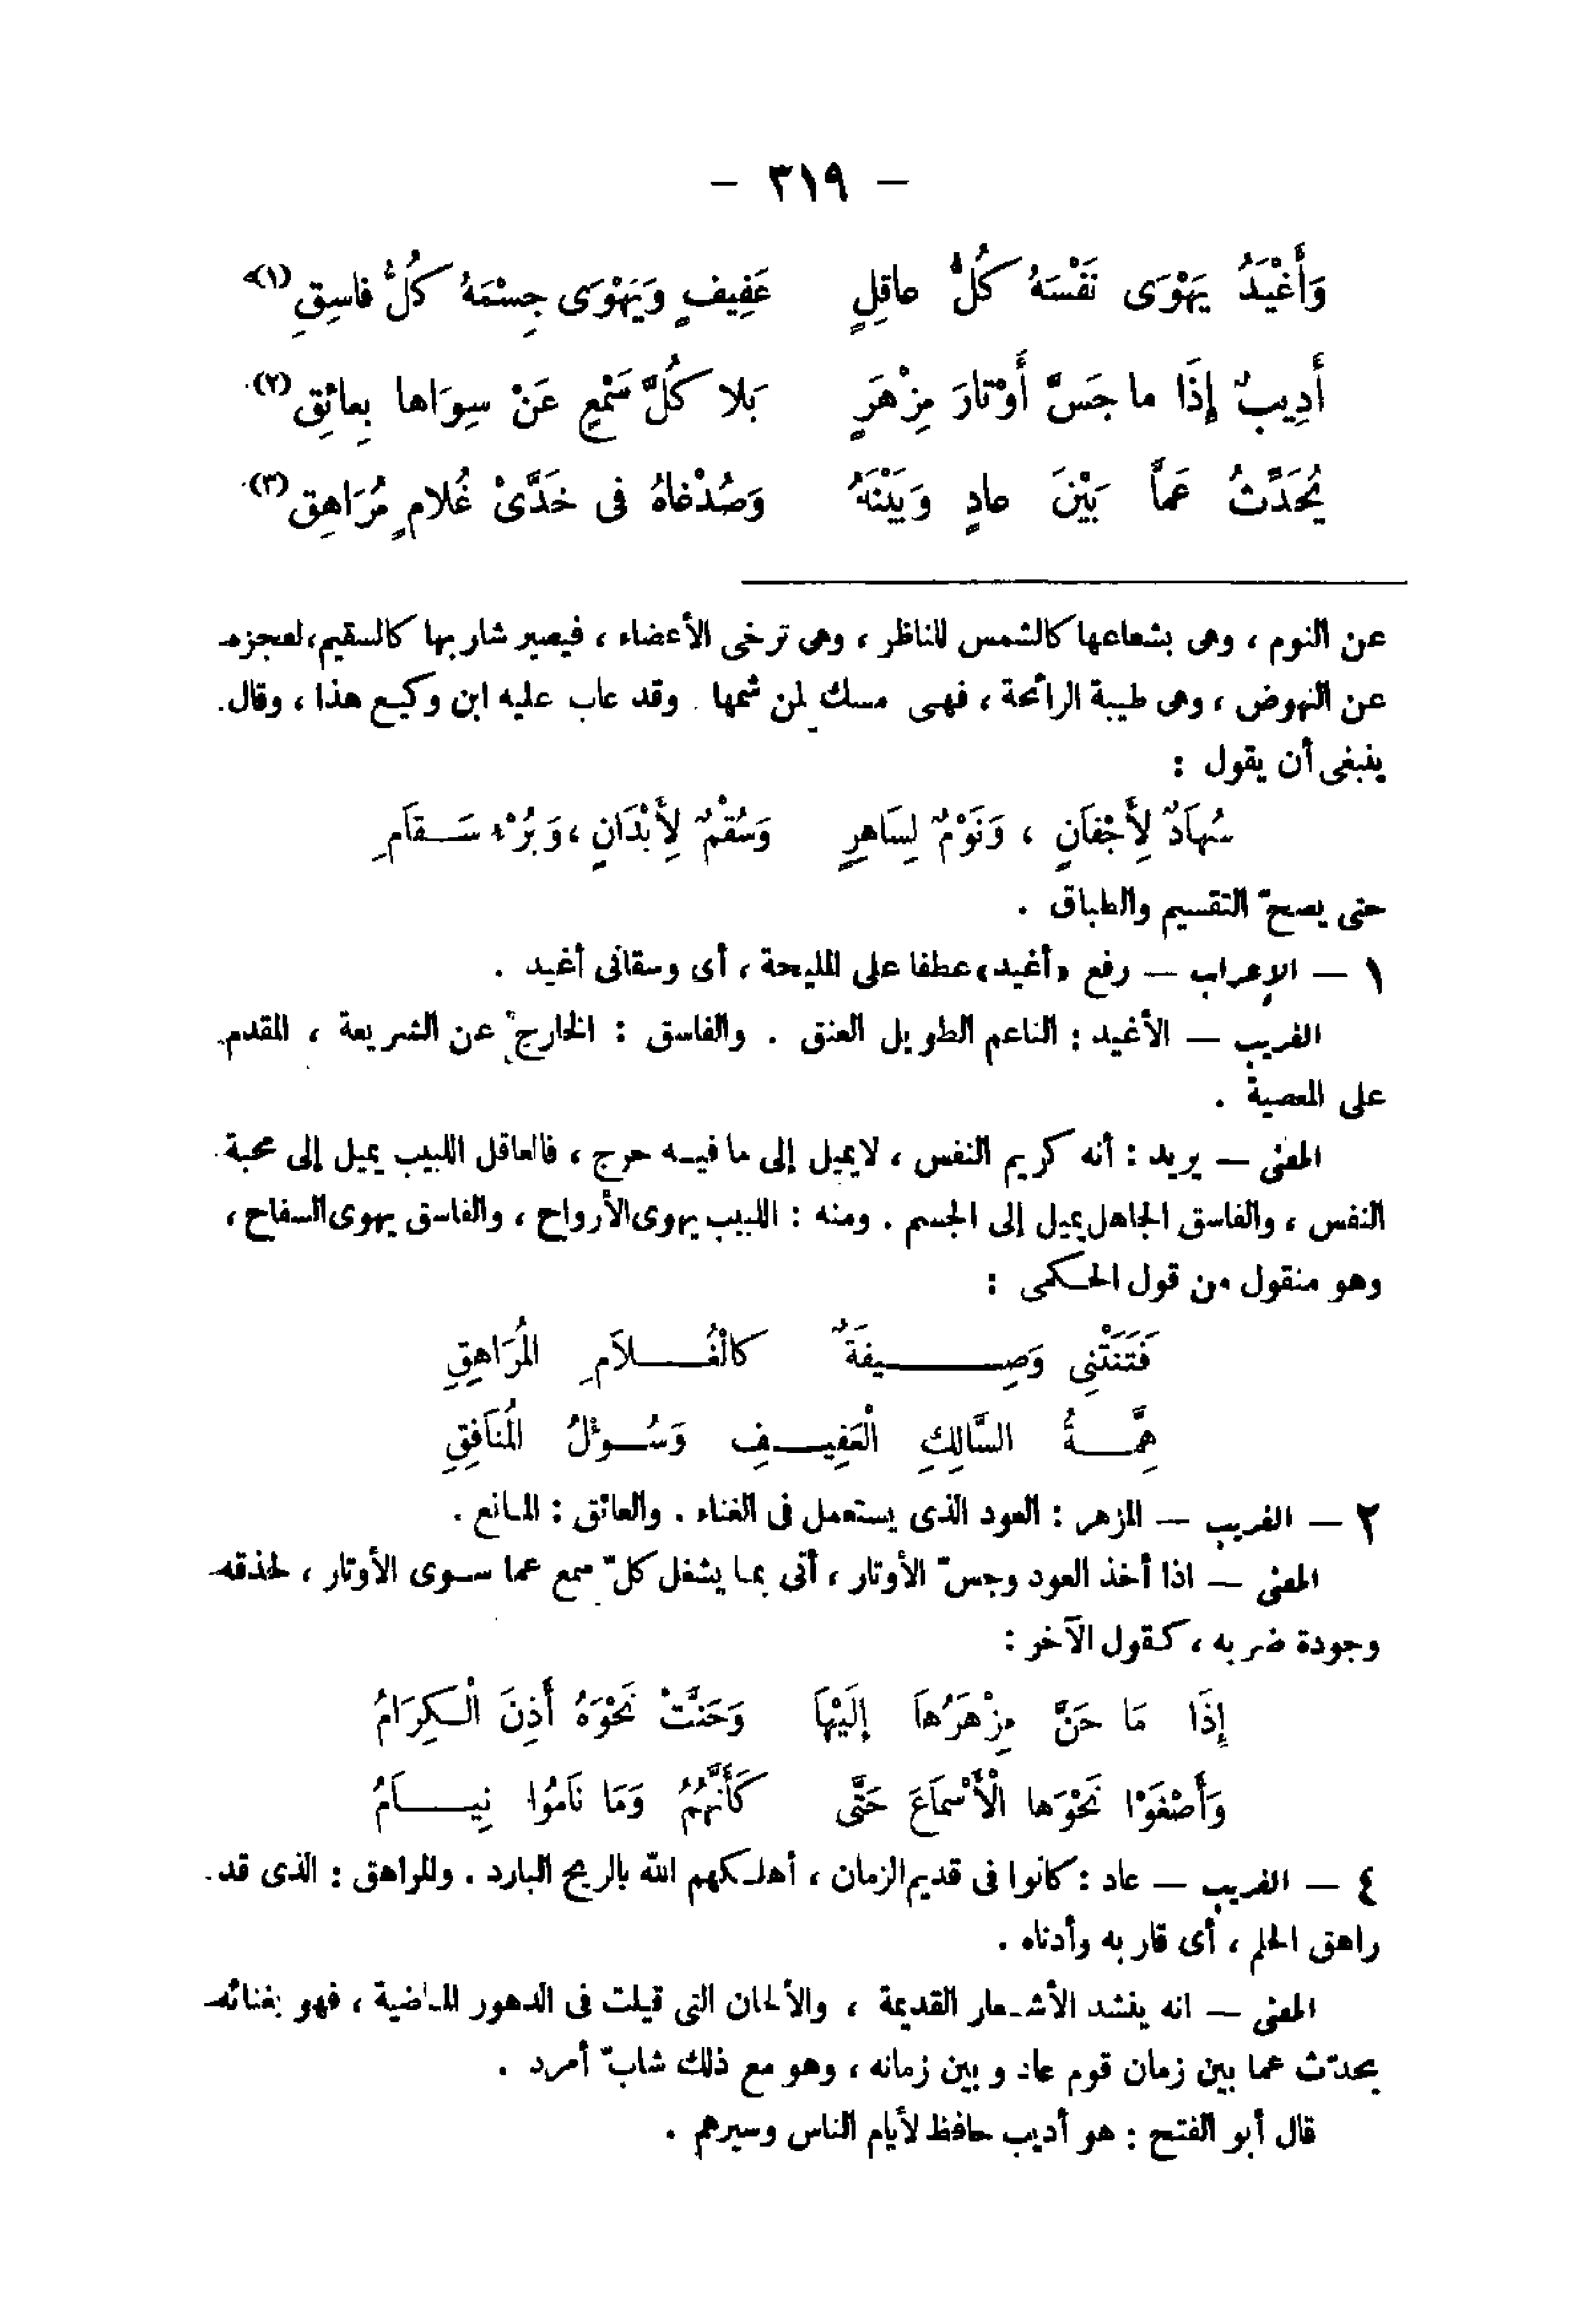 — ٣١٩ —
وَأَغْيَدُ يَهْوَى نَفْسَهُ كُلُّ عاقِلٍ عَفِيفٍ وَيَهْوَى جِسْمَهُ كُلُّ فاسِقِ (١)
أَدِيبٌ إِذَا ما جَسَّ أَوْتارَ مِزْهَرٍ بَلا كُلَّ سَمْعٍ عَنْ سِوَاها بِعائِقِ (٢)
يُحَدِّثُ عَمَّا بَيْنَ عادٍ وَبَيْنَهُ وَصُدْغاهُ فى خَدَّىْ غُلامٍ مُرَاهِقِ (٣)
عن النوم ، وهى بشعاعها كالشمس للناظر ، وهى ترخى الأعضاء ، فيصير شاربها كالسقيم، لعجزه
عن النهوض ، وهى طيبة الرائحة ، فهى مسك لمن شمها . وقد عاب عليه ابن وكيع هذا ، وقال
ينبغى أن يقول :
سُهَادٌ لِأَجْفَانٍ ، وَنَوْمٌ لِسَاهِرٍ وَسُقْمٌ لِأَبْدَانٍ ، وَبُرْءُ سَقَامِ
حتى يصحّ التقسيم والطباق .
١ — الإعراب — رفع «أغيد» عطفا على المليحة ، أى وسقانى أغيد .
الغريب — الأغيد : الناعم الطويل العنق . والفاسق : الخارج عن الشريعة ، المقدم
على المعصية .
المعنى — يريد : أنه كريم النفس ، لايميل إلى ما فيه حرج ، فالعاقل اللبيب يميل إلى محبة
النفس ، والفاسق الجاهل يميل إلى الجسم . ومنه : اللبيب يهوى الأرواح ، والفاسق يهوى السفاح ،
وهو منقول من قول الحكمى :
فَتَنَتْنِى وَصِيفَةٌ كالْغُلاَمِ المُرَاهِقِ
هِمَّةُ السَّالِكِ الْعَفِيفِ وَسُوْلُ المُنَافِقِ
٢ — الغريب — المزهر : العود الذى يستعمل فى الغناء . والعائق : المانع .
المعنى — اذا أخذ العود وجسّ الأوتار ، أتى بما يشغل كلّ سمع عما سوى الأوتار ، لحذقه
وجودة ضربه ، كقول الآخر :
إِذَا مَا حَنَّ مِزْهَرُهَا إِلَيْهَا وَحَنَّتْ نَحْوَهُ أَذِنَ الْكِرَامُ
وَأَصْغَوْا نَحْوَها الْأَسْمَاعَ حَتَّى كَأَنَّهُمُ وَمَا نَامُوا نِيَامُ
٤ — الغريب — عاد : كانوا فى قديم الزمان ، أهلكهم الله بالريح البارد . والمراهق : الذى قد
راهق الحلم ، أى قاربه وأدناه .
المعنى — انه ينشد الأشعار القديمة ، والألحان التى قيلت فى الدهور الماضية ، فهو بغنائه
يحدّث عما بين زمان قوم عاد وبين زمانه ، وهو مع ذلك شابّ أمرد .
قال أبو الفتح : هو أديب حافظ لأيام الناس وسيرهم .